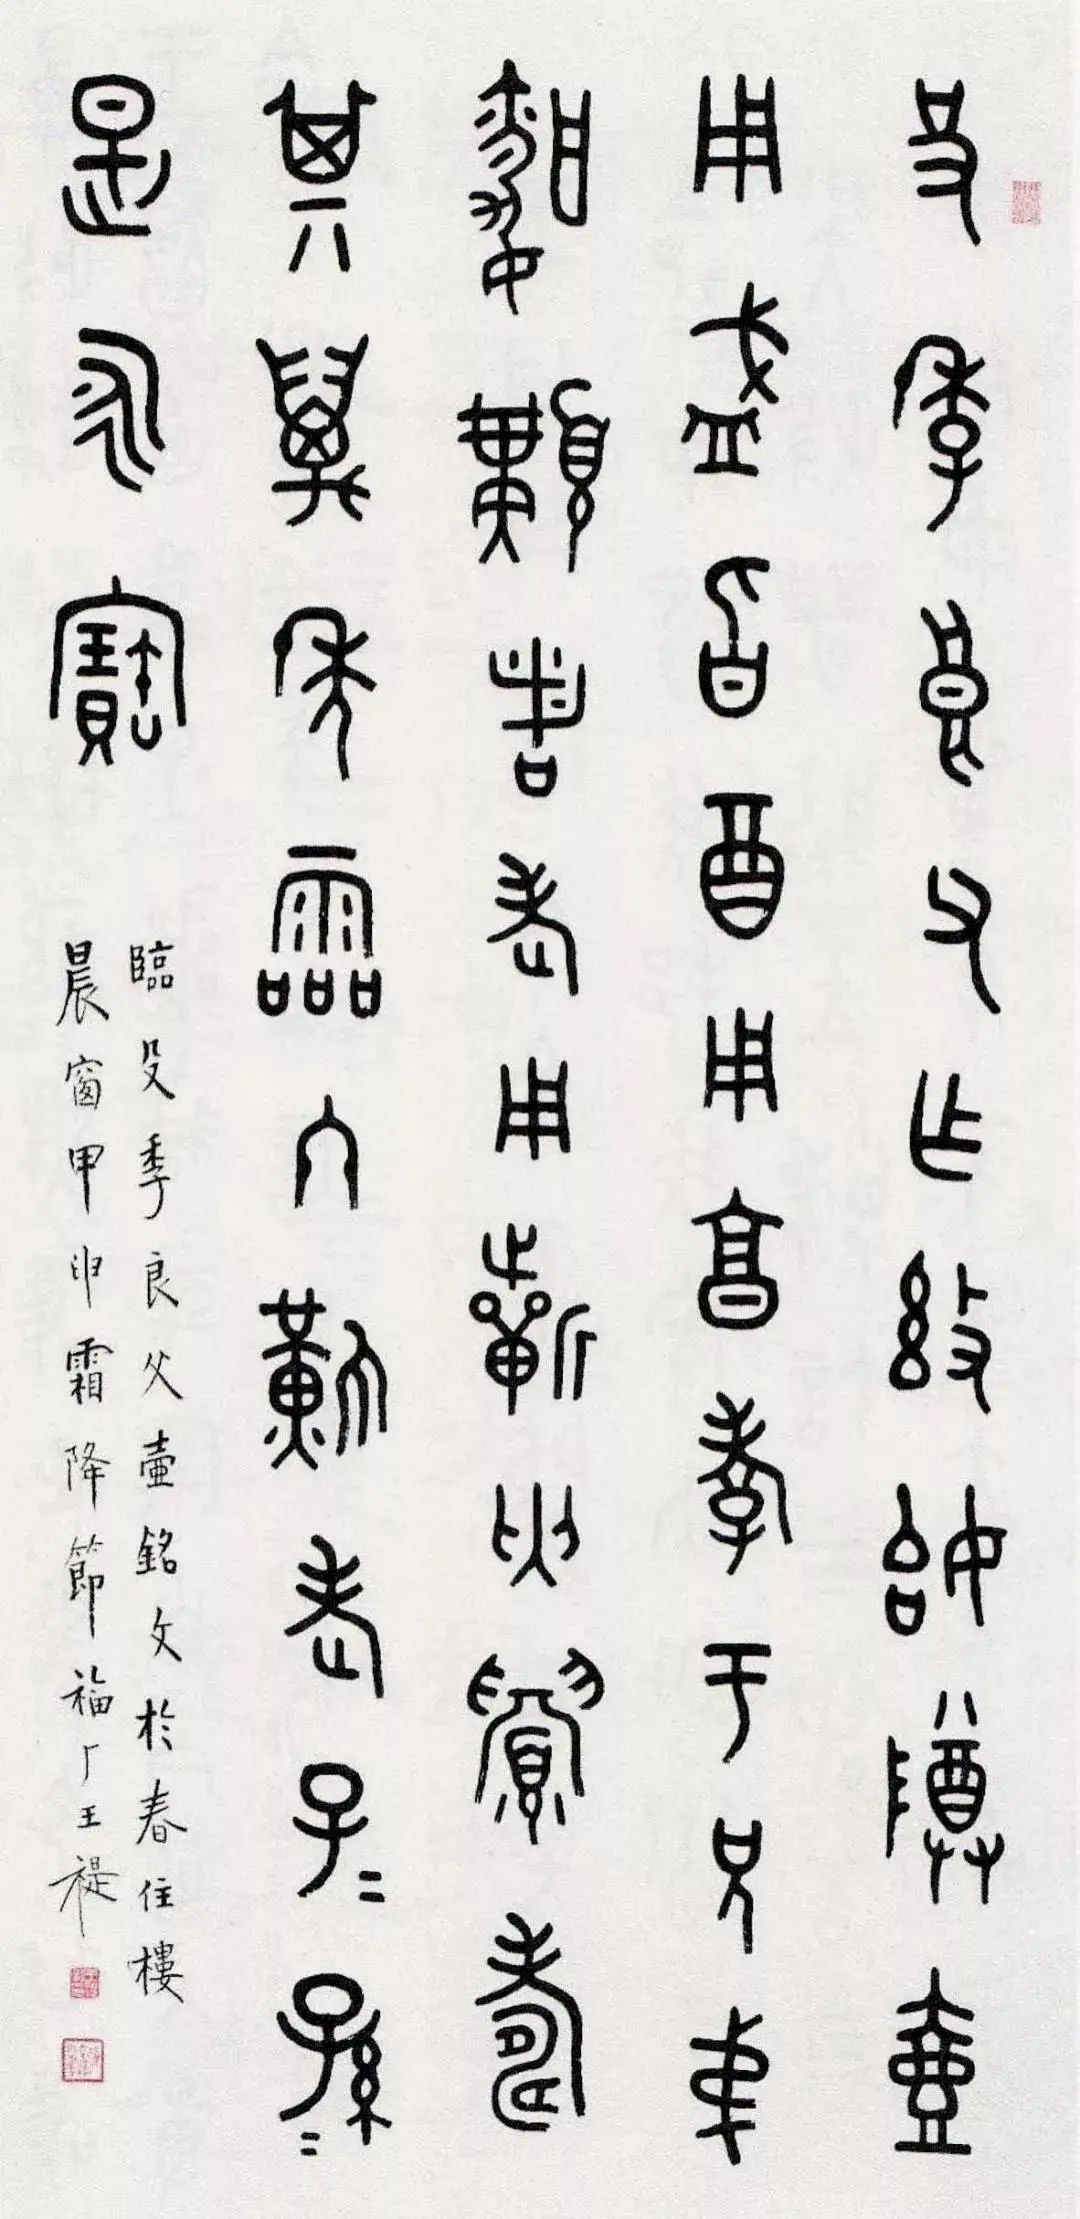 殳季良父乍姒尊壺
用盛旨酒用亯孝于兄弟
婚顜者老用旂匄眉壽
其萬年霝冬難老子=孫=
是永寶
臨殳季良父壺銘文於春住樓
晨窗甲申霜降節福厂王禔